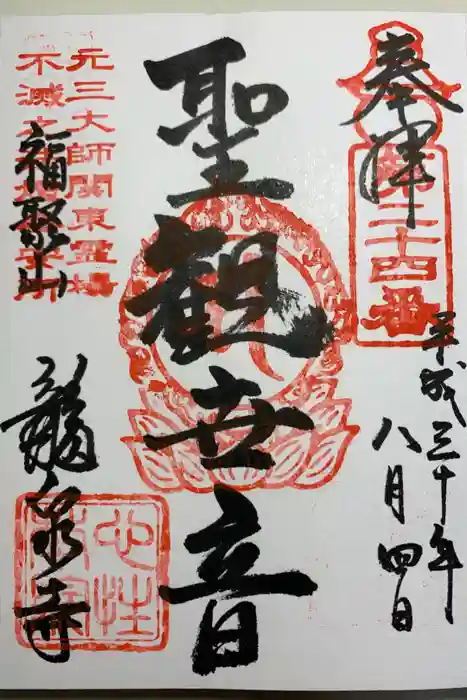 奉拝
第二十四番
平成三十年
八月四日
聖観世音
元三大師関東霊場
不滅之
福聚山
龍泉寺